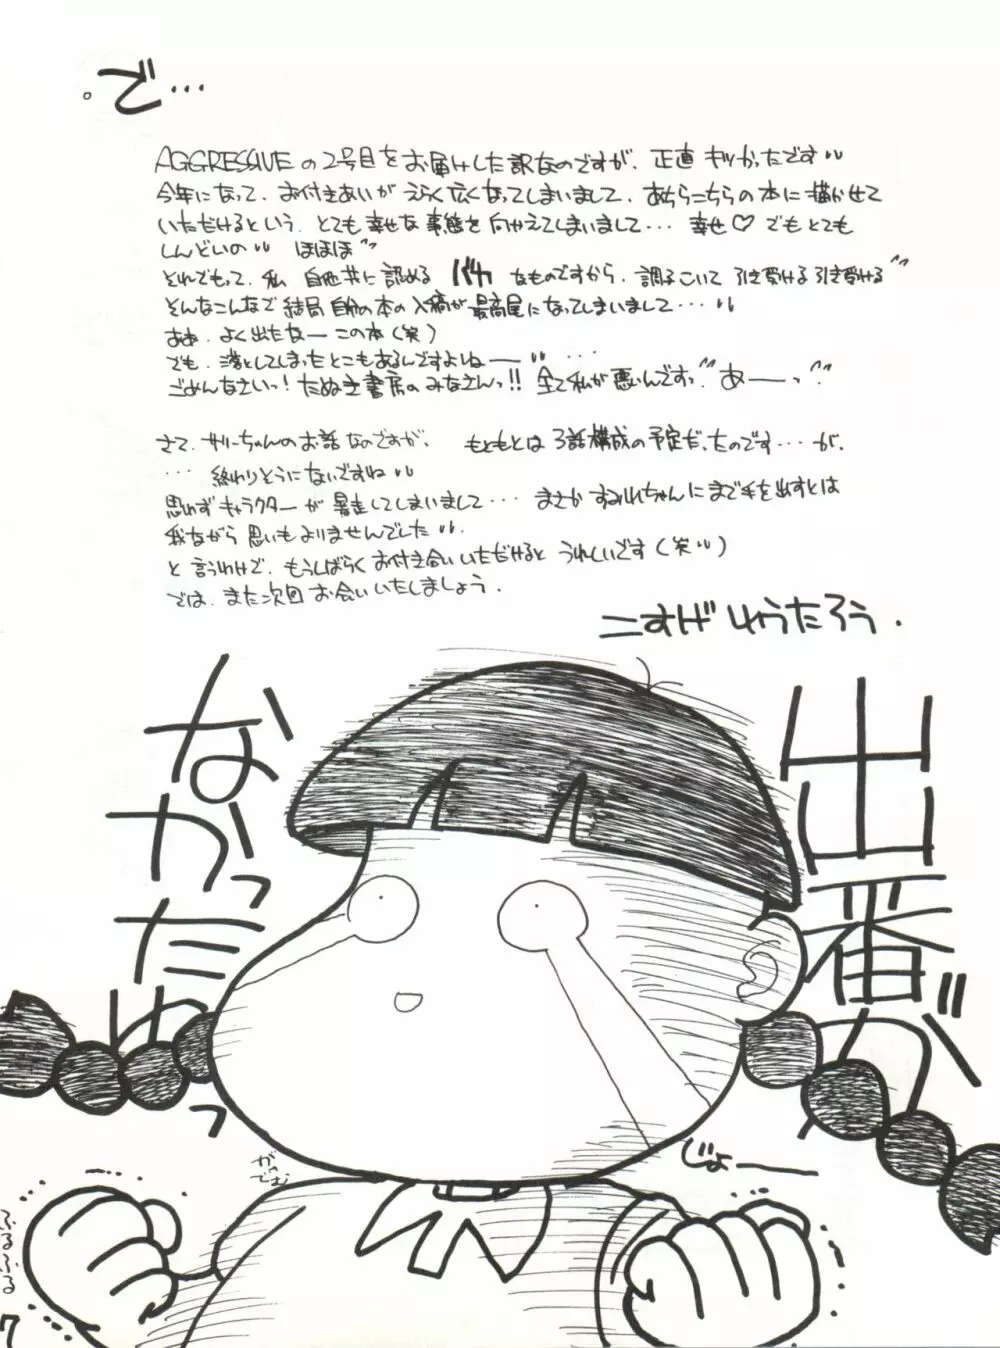 。で…
AGGRESSIVEの2号目をお届けした訳なのですが、正直キツかったです〃
今年になって、お付きあいがえらく広くなってしまいまして、あちらこちらの本に描かせて
いただけるという、とても幸せな事態を向かえてしまいまして… 幸せ♡でもとても
しんどいの〃 ほほほ〃
それでもって、私、自他共に認めるバカなものですから、調子こいて引き受ける引き受ける〃
そんなこんなで結局自分の本の入稿が最高尾になってしまいまして…〃
ああ、よく出たなーこの本(笑)
でも、落としてしまったとこもあるんですよねー〃…
ごめんなさいっ!たぬき書房のみなさんっ!!全て私が悪いんですっ〃"あーーっ"
さて、サリーちゃんのお話なのですが、もともとは3話構成の予定だったのです…が、
… 終わりそうにないですね〃
思わずキャラクターが暴走してしまいまして… まさかすみれちゃんにまで手を出すとは
我ながら思いもよりませんでした〃.
と言うわけで、もうしばらくお付き合いいただけるとうれしいです(笑〃)
では、また次回お会いいたしましょう.
こすげしゅうたろう.
出番が
なかったゆっ
じょーー
がってむ
ふるふる
7